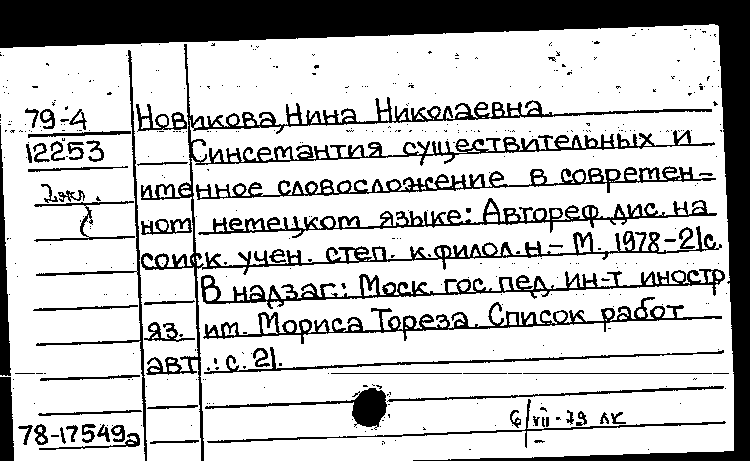 79-4 Новикова, Нина Николаевна.
12253 Синсемантия существительных и
2 экз. именное словосложение в современ=
ном немецком языке: Автореф. дис. на
соиск. учен. степ. к.филол.н.- М., 1978-21с.
В надзаг.: Моск. гос. пед. ин-т иностр.
яз. им. Мориса Тореза. Список работ
авт.: с. 21.
6/VII-79 ЛК
78-17549а